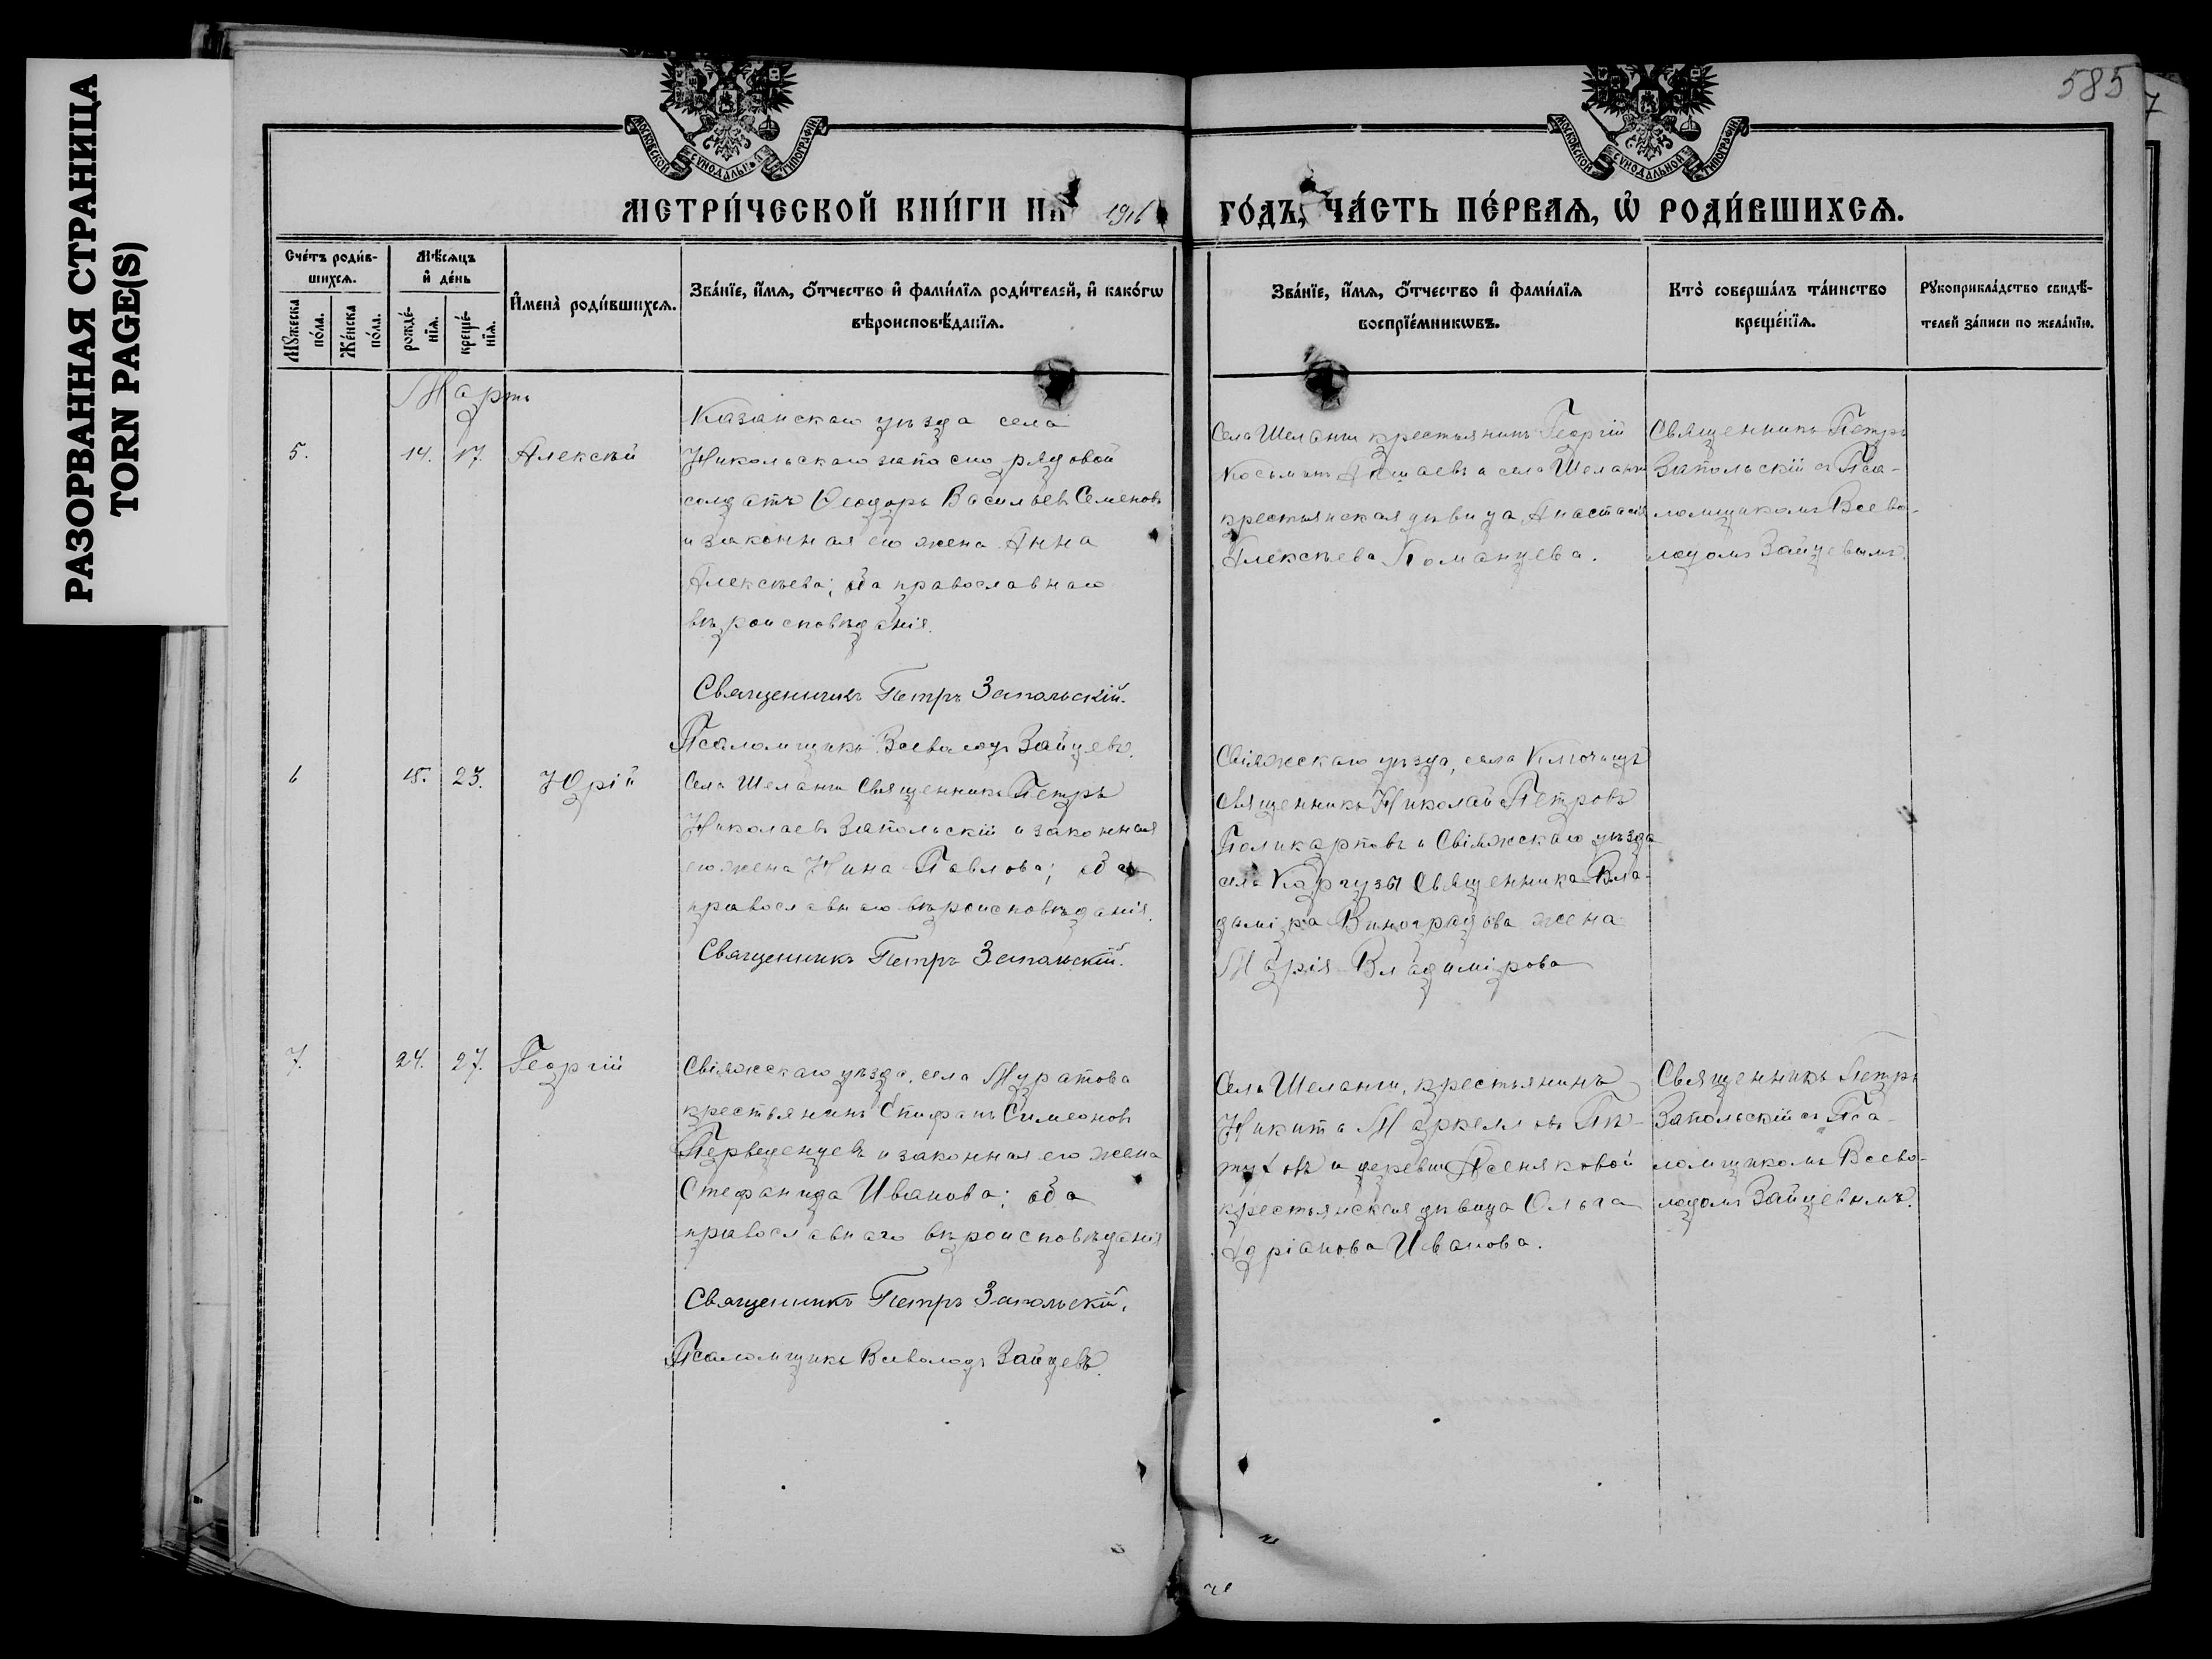 РАЗОРВАННАЯ СТРАНИЦА
TORN PAGE(S)
585
7
МОСКОВСКОЙ СУНОДАЛЬНОЙ ТИПОГРАФІИ
МОСКОВСКОЙ СУНОДАЛЬНОЙ ТИПОГРАФІИ
МЕТРИ́ЧЕСКОЙ КНИ́ГИ НА 1916
ГО́ДЪ, ЧА́СТЬ ПЕ́РВАЯ, Ѡ РОДИ́ВШИХСЯ.
Сче́тъ роди́в-
шихся.
Мꙋжеска по́ла.
Же́нска по́ла.
Мѣ́сяцъ
и҆ де́нь
рожде́-
нїя.
креще́-
нїя.
И҆мена̀ роди́вшихся.
Зва́нїе, и҆́мя, ѻ҆́тчество и҆ фами́лїя роди́телей, и҆ како́гѡ
вѣроисповѣ́данїя.
Зва́нїе, и҆́мя, ѻ҆́тчество и҆ фами́лїя
воспрїе́мникѡвъ.
Кто̀ соверша́лъ та́инство
креще́нїя.
Рꙋкоприкла́дство свидѣ́-
телей за́писи по жела́нїю.
Мартъ
5.
14.
17.
Алексѣй
Казанскаго уѣзда села
Никольскаго запасно рядовой
солдатъ Ѳеодоръ Васильевъ Семеновъ
и законная его жена Анна
Алексѣева; оба православнаго
вѣроисповѣданія.
Священникъ Петръ Запольскій.
Псаломщикъ Всеволодъ Зайцевъ.
Села Шеланги крестьянинъ Георгій
Косьминъ и села Шеланги
крестьянская дѣвица Анастасія
Алексѣева Романцева.
Священникъ Петръ
Запольскій съ Пса-
ломщикомъ Всево-
лодомъ Зайцевымъ.
6
18.
23.
Юрій
Села Шеланги Священникъ Петръ
Николаевъ Запольскій и законная
его жена Нина Павлова; оба
православнаго вѣроисповѣданія.
Священникъ Петръ Запольскій.
Свіяжскаго уѣзда, села Ключищъ
священникъ Николай Петровъ
Поликарповъ и Свіяжскаго уѣзда
села Каргузы Священника Вла-
диміра Виноградова жена
Марія Владимірова
7.
24.
27.
Георгій
Свіяжскаго уѣзда, села Муратова
крестьянинъ Епифанъ Симеоновъ
Перведенцевъ и законная его жена
Стефанида Иванова; оба
православнаго вѣроисповѣданія
Священникъ Петръ Запольскій.
Псаломщикъ Всеволодъ Зайцевъ.
Села Шеланги, крестьянинъ
Никита Маркелловъ Пѣ-
туховъ и деревни Ясеняковой
крестьянская дѣвица Ольга
Адріанова Иванова.
Священникъ Петръ
Запольскій съ Пса-
ломщикомъ Всево-
лодомъ Зайцевымъ.